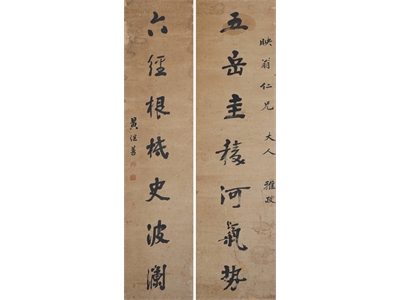 映翁仁兄大人雅政
五岳圭稜河氣勢
六經根柢史波瀾
黃